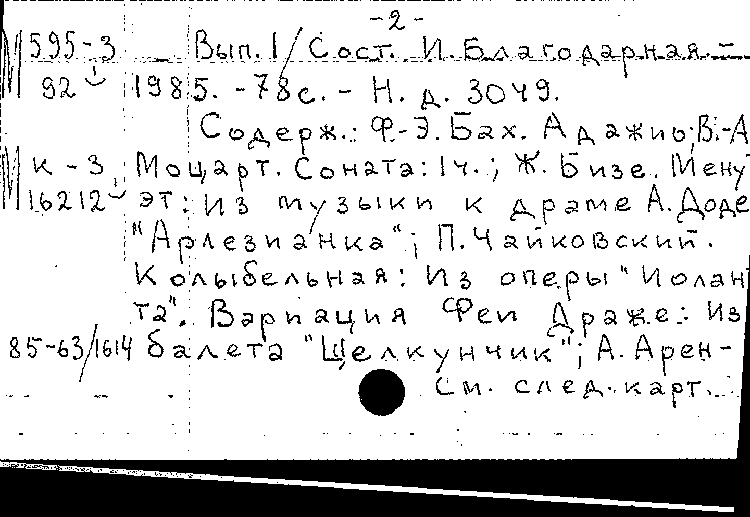 - 2 -
М 595-3 Вып. 1 / Сост. И. Благодарная. -
92 1985. - 78 с. - Н. д. 3049.
Содерж.: Ф.-Э. Бах. Адажио; В.-А
М К-3 Моцарт. Соната: I ч.; Ж. Бизе. Мену
16212 эт: Из музыки к драме А. Доде
"Арлезианка"; П. Чайковский.
Колыбельная: Из оперы "Иолан
та". Вариация Феи Драже: Из
85-63/1614 балета "Щелкунчик"; А. Арен-
См. след. карт.